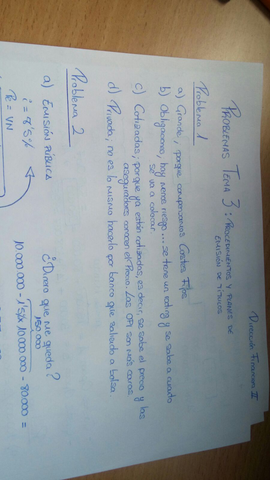 Dirección Financiera II
PROBLEMAS TEMA 3: PROCEDIMIENTOS Y PLANES DE
EMISIÓN DE TÍTULOS
Problema 1
a) Grande, porque compensamos Costes Fijos
b) Obligaciones, hay menos riesgo... se tiene un rating y se sabe a cuanto
se va a colocar.
c) Cotizadas, porque ya están cotizadas, es decir, se sabe el precio y los
aseguradores conocen el Precio. Las OPI son más caras
d) Privada, no es lo mismo hacerlo por banco que saltando a bolsa
Problema 2
a) EMISIÓN PÚBLICA
¿Dinero que me queda?
i = 8'5%
150.000
10.000.000 - 1'5% 10.000.000 - 80.000 =
Pe = VN